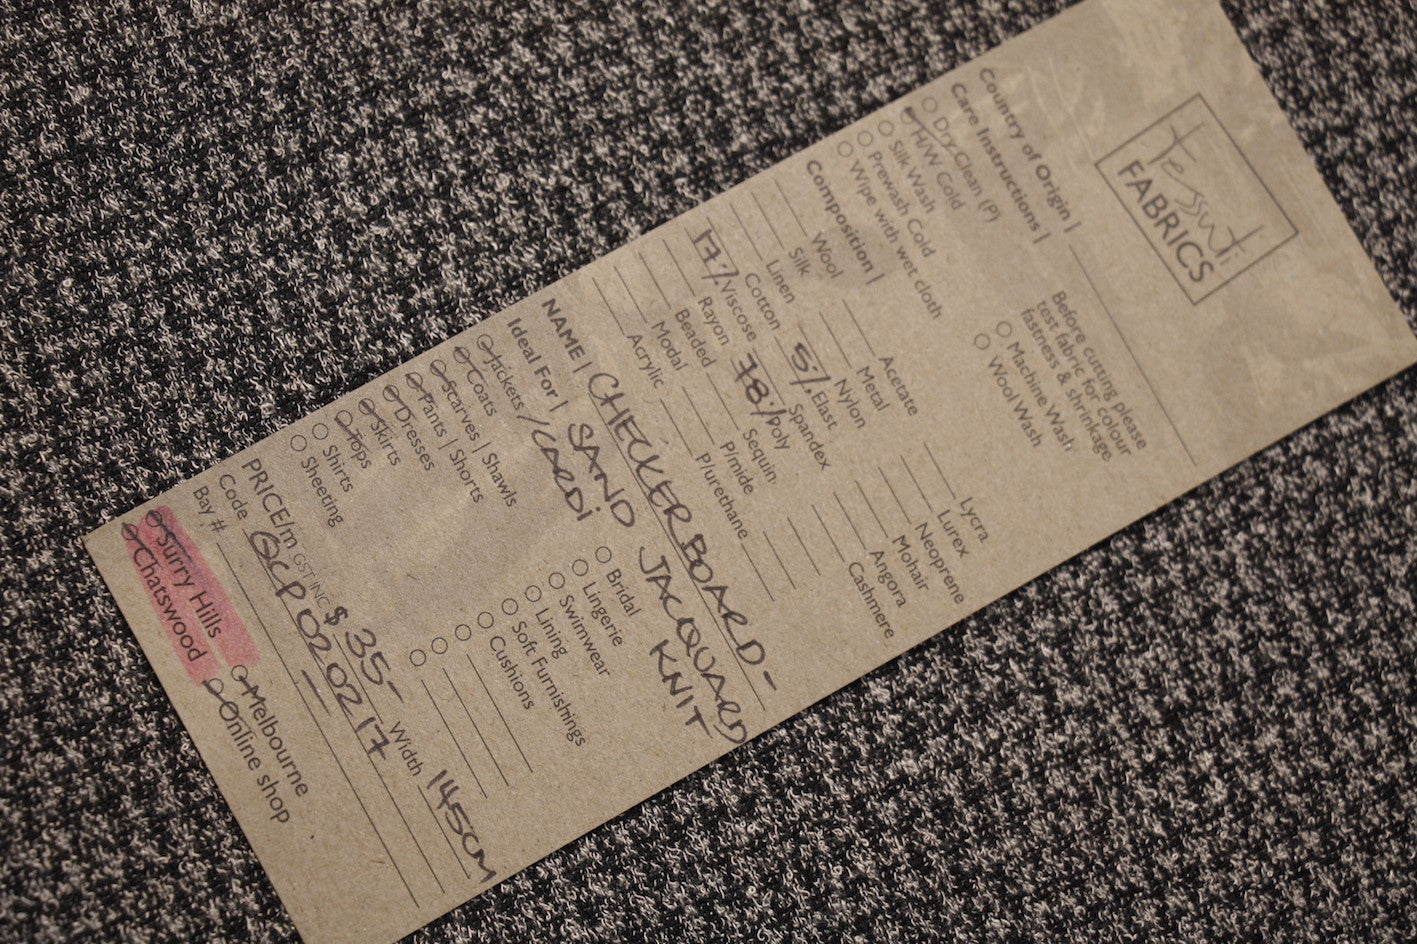 tessuti
FABRICS
Country of Origin |
Care Instructions |
Before cutting please
test fabric for colour
fastness & shrinkage.
Dry Clean (P)
H/W Cold
Silk Wash
Prewash Cold
Wipe with wet cloth
Machine Wash
Wool Wash
Composition |
Wool
Silk
Linen
Cotton
17% Viscose
Rayon
Beaded
Modal
Acrylic
Acetate
Metal
Nylon
5% Elast
Spandex
78% Poly
Sequin
P/mide
P/urethane
Lycra
Lurex
Neoprene
Mohair
Angora
Cashmere
NAME | CHECKERBOARD -
SAND JACQUARD
KNIT
Ideal For |
Jackets / CARDI
Coats
Scarves | Shawls
Pants | Shorts
Dresses
Skirts
Tops
Shirts
Sheeting
Bridal
Lingerie
Swimwear
Lining
Soft Furnishings
Cushions
PRICE/m GST INC $35- Width 145CM
Code QCP020217
Bay #
Surry Hills
Chatswood
Melbourne
Online shop